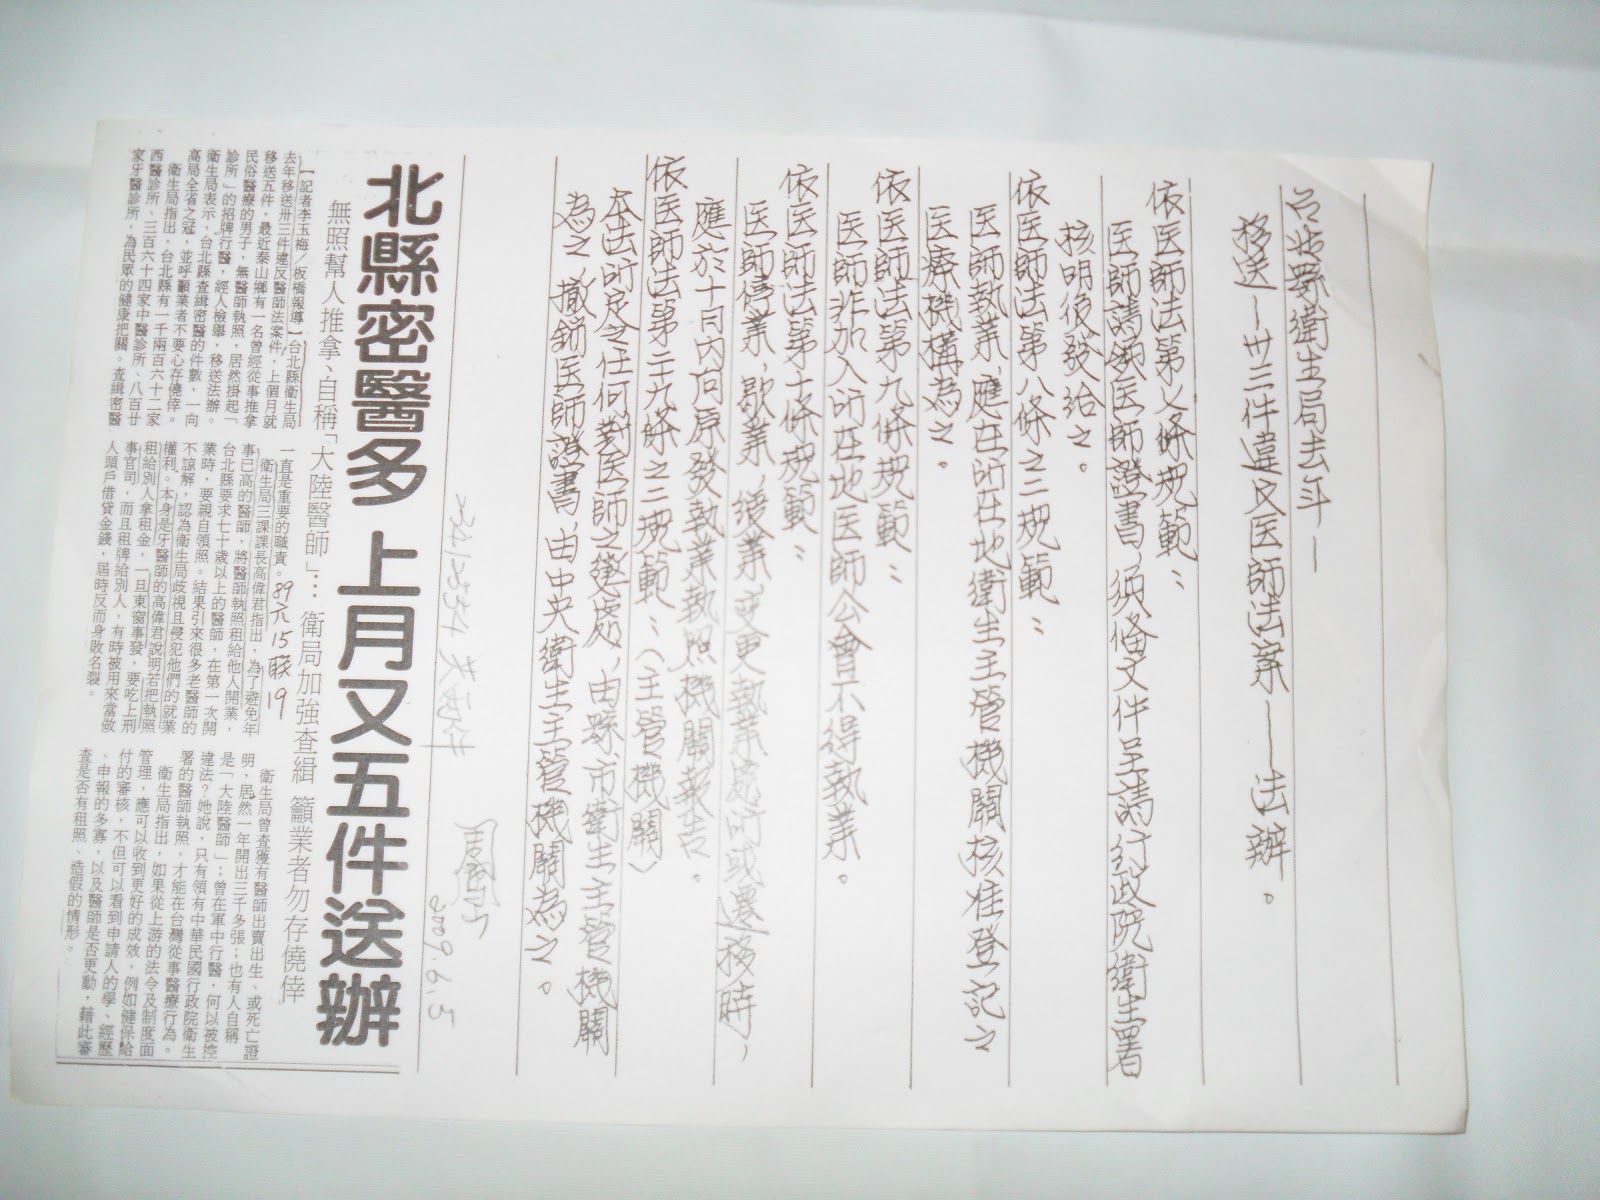 台北縣衛生局去年—
移送—卅三件違反医師法案——法辦。
依医師法第七條規範：
医師請領医師證書，須俻文件呈請行政院衛生署
核明後發给之。
依医師法第八條之二規範：
医師執業，應在所在地衛生主管機關核准登記之
医療機構為之。
依医師法第九條規範：
医師非加入所在地医師公會不得執業。
依医師法第十條規範：
医師停業、歇業、
應於十日內向原發執業執照機關報告。
依医師法第二十九條之二規範：（主管機關）
本法所定之任何對医師之懲處，由縣市衛生主管機關
為之，撤銷医師證書，由中央衛生主管機關為之。
2009.6.5
北縣密醫多 上月又五件送辦
無照幫人推拿、自稱「大陸醫師」… 衛局加強查緝 籲業者勿存僥倖
【記者李玉梅／板橋報導】台北縣衛生局
去年移送卅三件違反醫師法案件，上個月就
移送五件，最近泰山鄉有一名曾經從事推拿
民俗醫療的男子，無醫師執照，居然掛起「
診所」的招牌行醫，經人檢舉，移送法辦。
衛生局表示，台北縣查緝密醫的件數，一向
高局全省之冠，並呼籲業者不要心存僥倖。
衛生局指出，台北縣有一千兩百六十二家
西醫診所、三百六十四家中醫診所、八百廿
家牙醫診所，為民眾的健康把關。查緝密醫
一直是重要的職責。
89元15联19
衛生局三課課長高偉君指出，為了避免年
事已高的醫師，將醫師執照租給他人開業，
台北縣要求七十歲以上的醫師，在第一次開
業時，要親自領照。結果引來很多老醫師的
不諒解，認為衛生局歧視且侵犯他們的就業
權利。本身是牙醫師的高偉君說明若把執照
租給別人拿租金，一旦東窗事發，要吃上刑
事官司，而且租牌給別人，有時被用來當做
人頭戶借貸金錢，屆時反而身敗名裂。
衛生局曾查獲有醫師出賣出生、或死亡證
明，居然一年開出三千多張；也有人自稱
是「大陸醫師」；曾在軍中行醫，何以被控
違法？她說，只有領有中華民國行政院衛生
署的醫師執照，才能在台灣從事醫療行為。
衛生局指出，如果從上游的法令及制度面
管理，應可以收到更好的成效，例如健保給
付的審核，不但可以看到申請人的學、經歷
、申報的多寡，以及醫師是否更動，藉此審
查是否有租照、造假的情形。